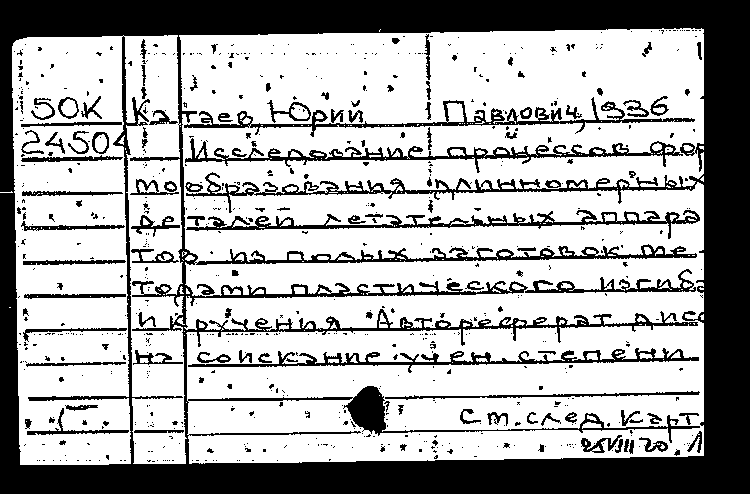 50К Катаев, Юрий Павлович, 1936
24504 Исследование процессов фор
мообразования длинномерных
деталей летательных аппара
тов из полых заготовок ме-
тодами пластического изгиба
и кручения. Автореферат дисс
на соискание учен. степени
См. след. карт.
25VIII 70.